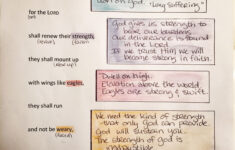 wait on God. "Long Suffering"
for the LORD
shall renew their strength,
God gives us strength to
bear our burdens
deliverance is found
in the Lord
If we trust Him we will
become strong in faith.
they shall mount up
with wings like eagles,
Dwell on high.
Elevation above the world
Eagles are strong & swift
they shall run
and not be weary,
We need the kind of strength
that only God can provide
God will sustain you.
The strength of God is